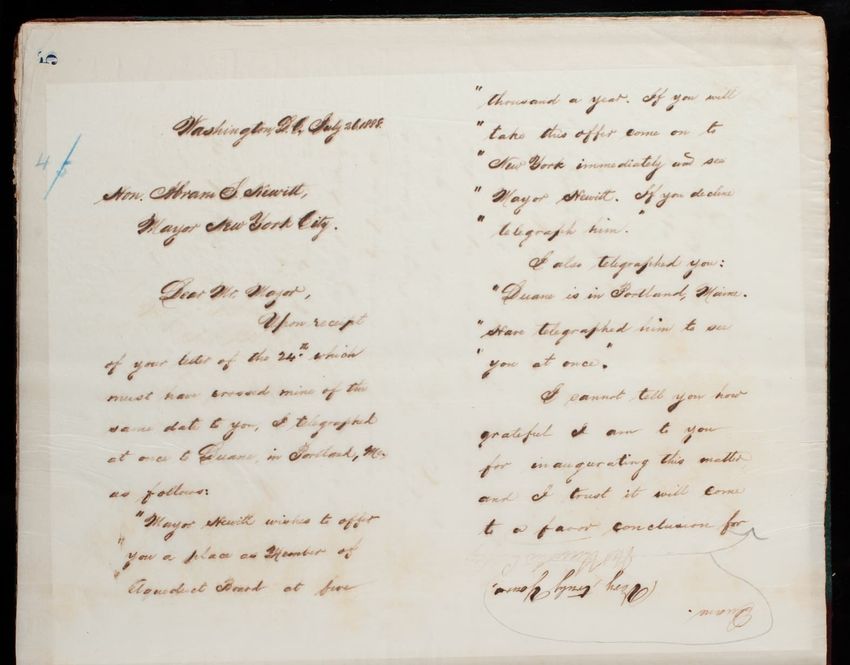 5
4/5
Washington, D.C. July 26, 1888.
Hon. Abram S. Hewitt,
Mayor New York City.
Dear Mr. Mayor,
Upon receipt
of your letter of the 24th. which
must have crossed mine of the
same date to you, I telegraphed
at once to Duane, in Portland, Me.
as follows:
"Mayor Hewitt wishes to offer
"you a place as Member of
"Aqueduct Board at five
"thousand a year. If you will
"take this offer come on to
"New York immediately and see
"Mayor Hewitt. If you decline
"telegraph him."
I also telegraphed you:
"Duane is in Portland, Maine.
"Have telegraphed him to see
"you at once."
I cannot tell you how
grateful I am to you
for inaugurating this matter
and I trust it will come
to a favor conclusion for
Duane.
Very Truly Yours,